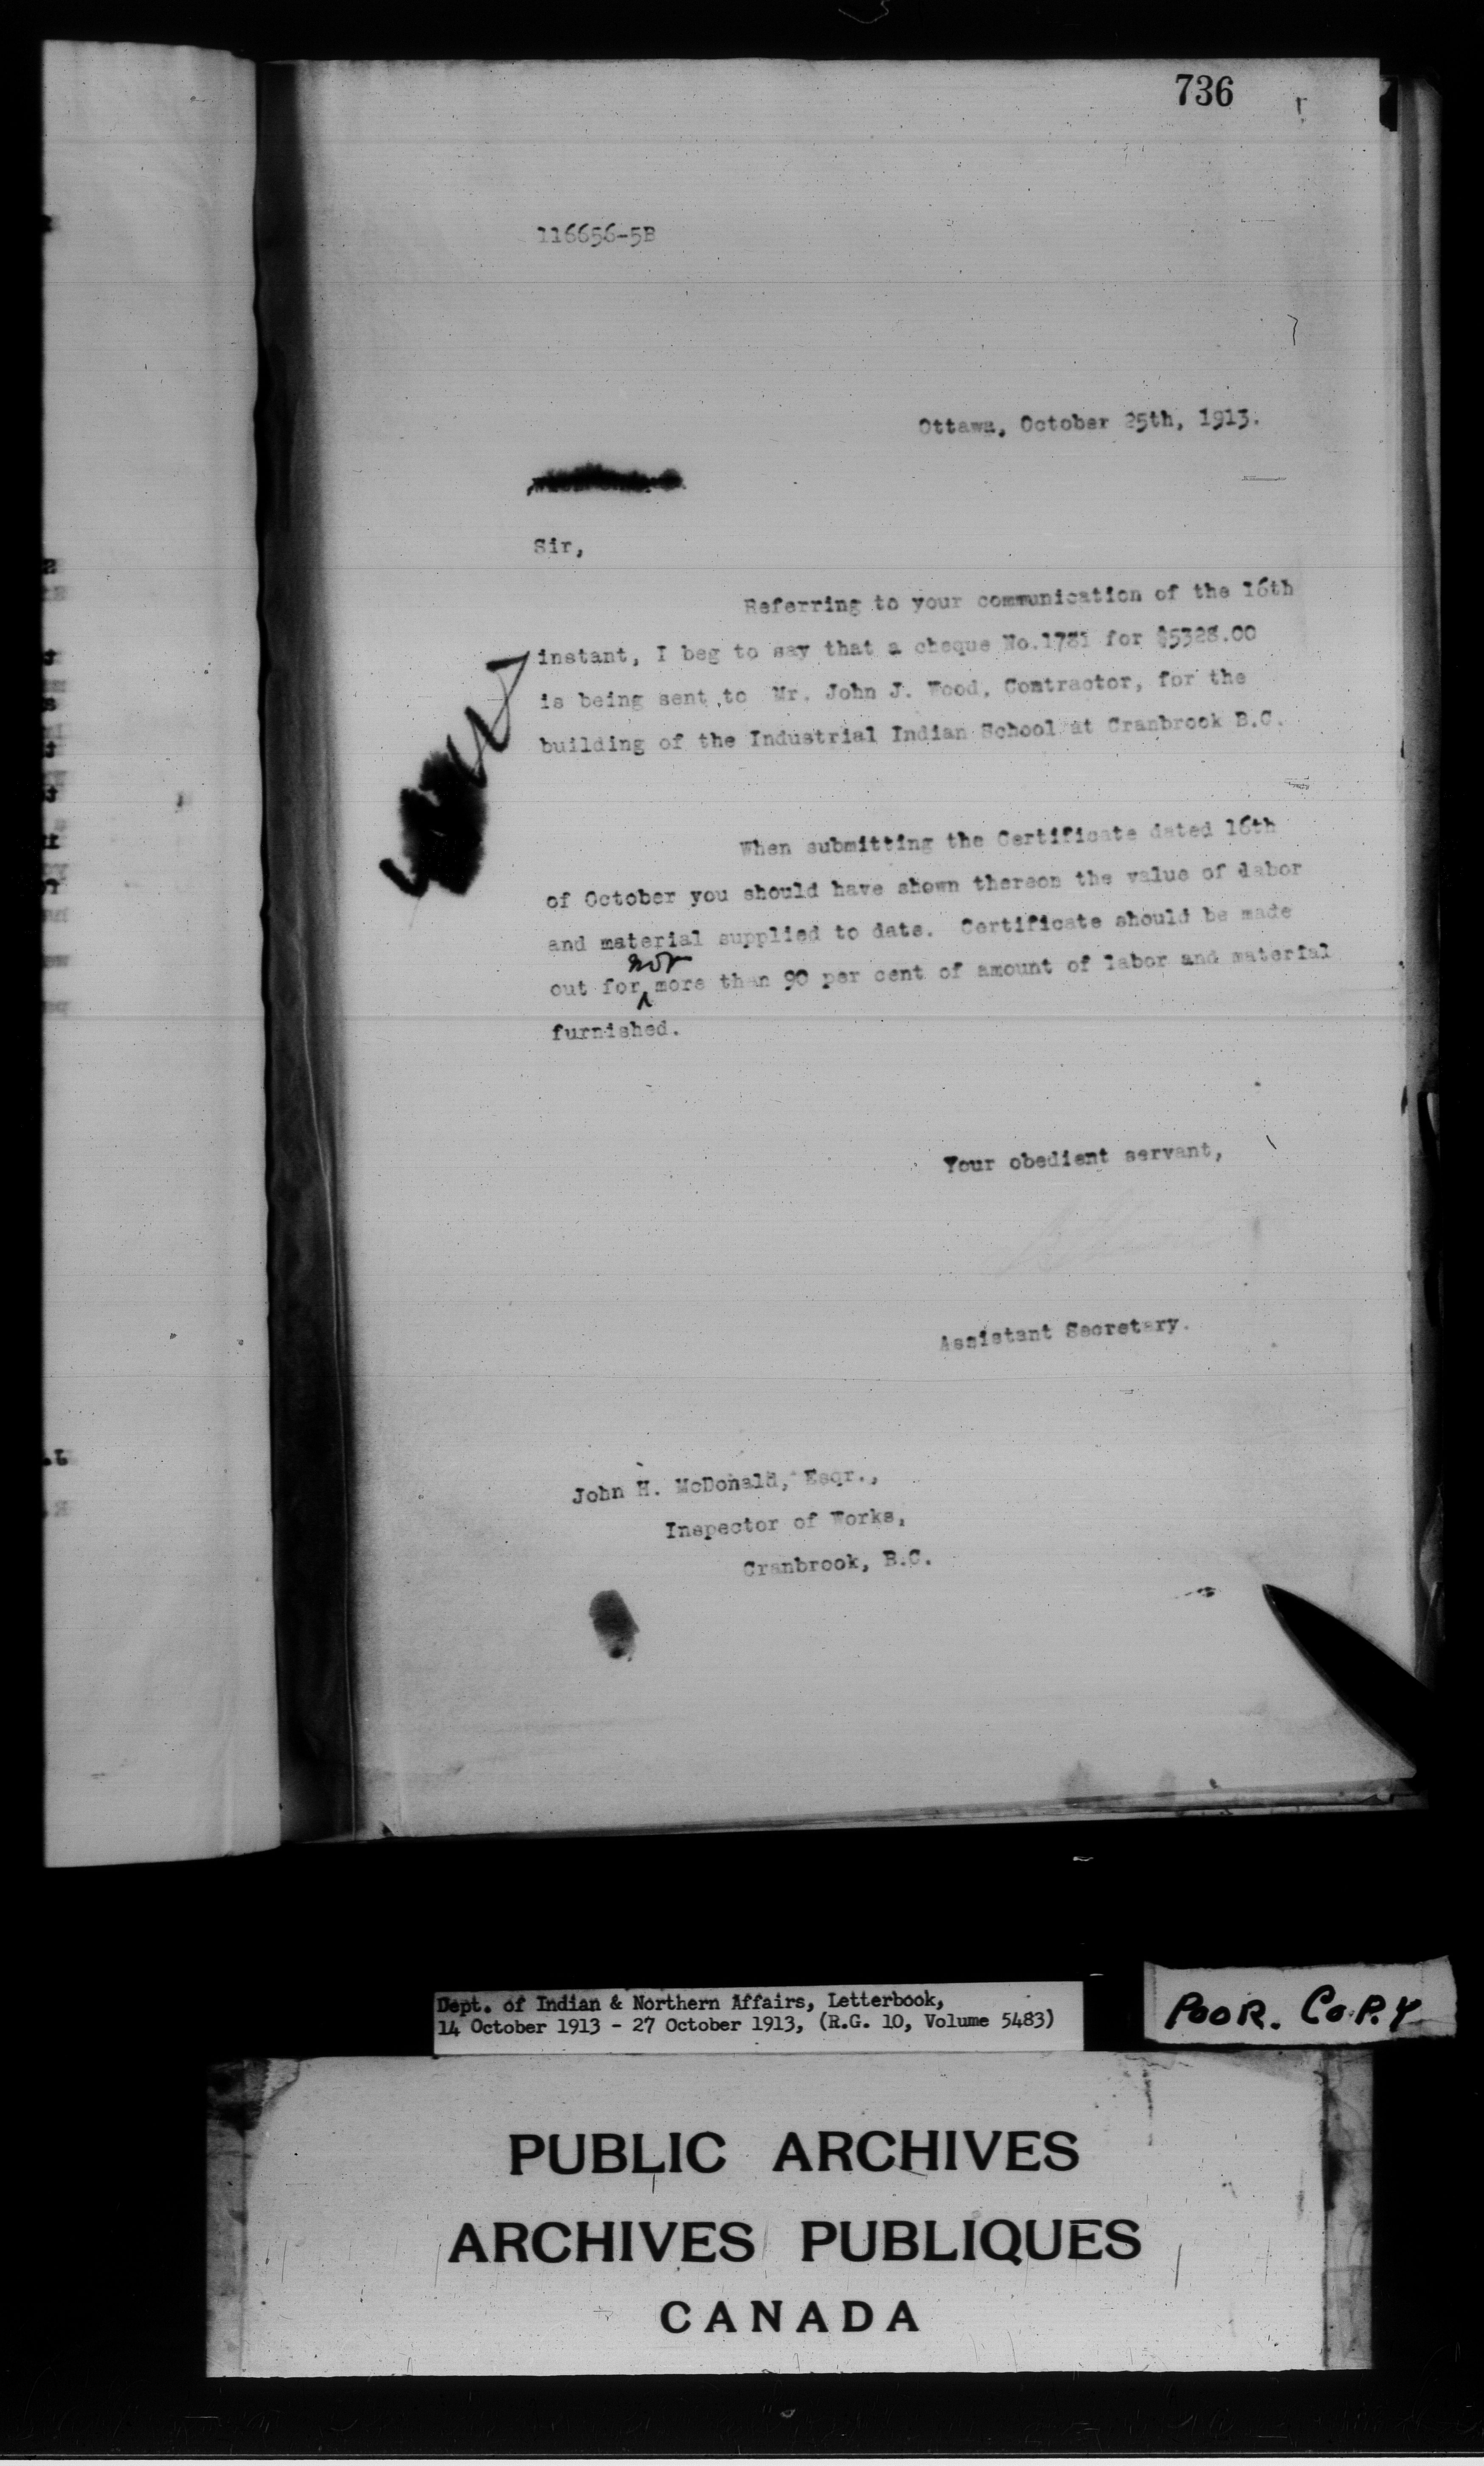 736
116656-5B
Ottawa, October 25th, 1913.
Sir,
Referring to your communication of the 16th
instant, I beg to say that a cheque No.1781 for $5328.00
is being sent to Mr. John J. Wood, Contractor, for the
building of the Industrial Indian School at Cranbrook B.C.
When submitting the Certificate dated 16th
of October you should have shown thereon the value of labor
and material supplied to date. Certificate should be made
not
out for more than 90 per cent of amount of labor and material
furnished.
Your obedient servant,
Assistant Secretary.
John H. McDonald, Esqr.,
Inspector of Works,
Cranbrook, B.C.
Dept. of Indian & Northern Affairs, Letterbook,
14 October 1913 - 27 October 1913, (R.G. 10, Volume 5483)
POOR. COPY
PUBLIC ARCHIVES
ARCHIVES PUBLIQUES
CANADA